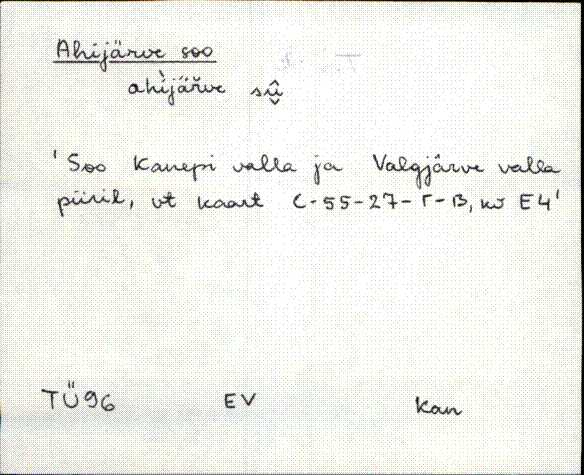 Ahijärve soo
ahìjäŕve sû̬
'Soo Kanepi valla ja Valgjärve valla
piiril, vt kaart C-55-27-Г-В, kv E4'
TÜ96 EV Kan